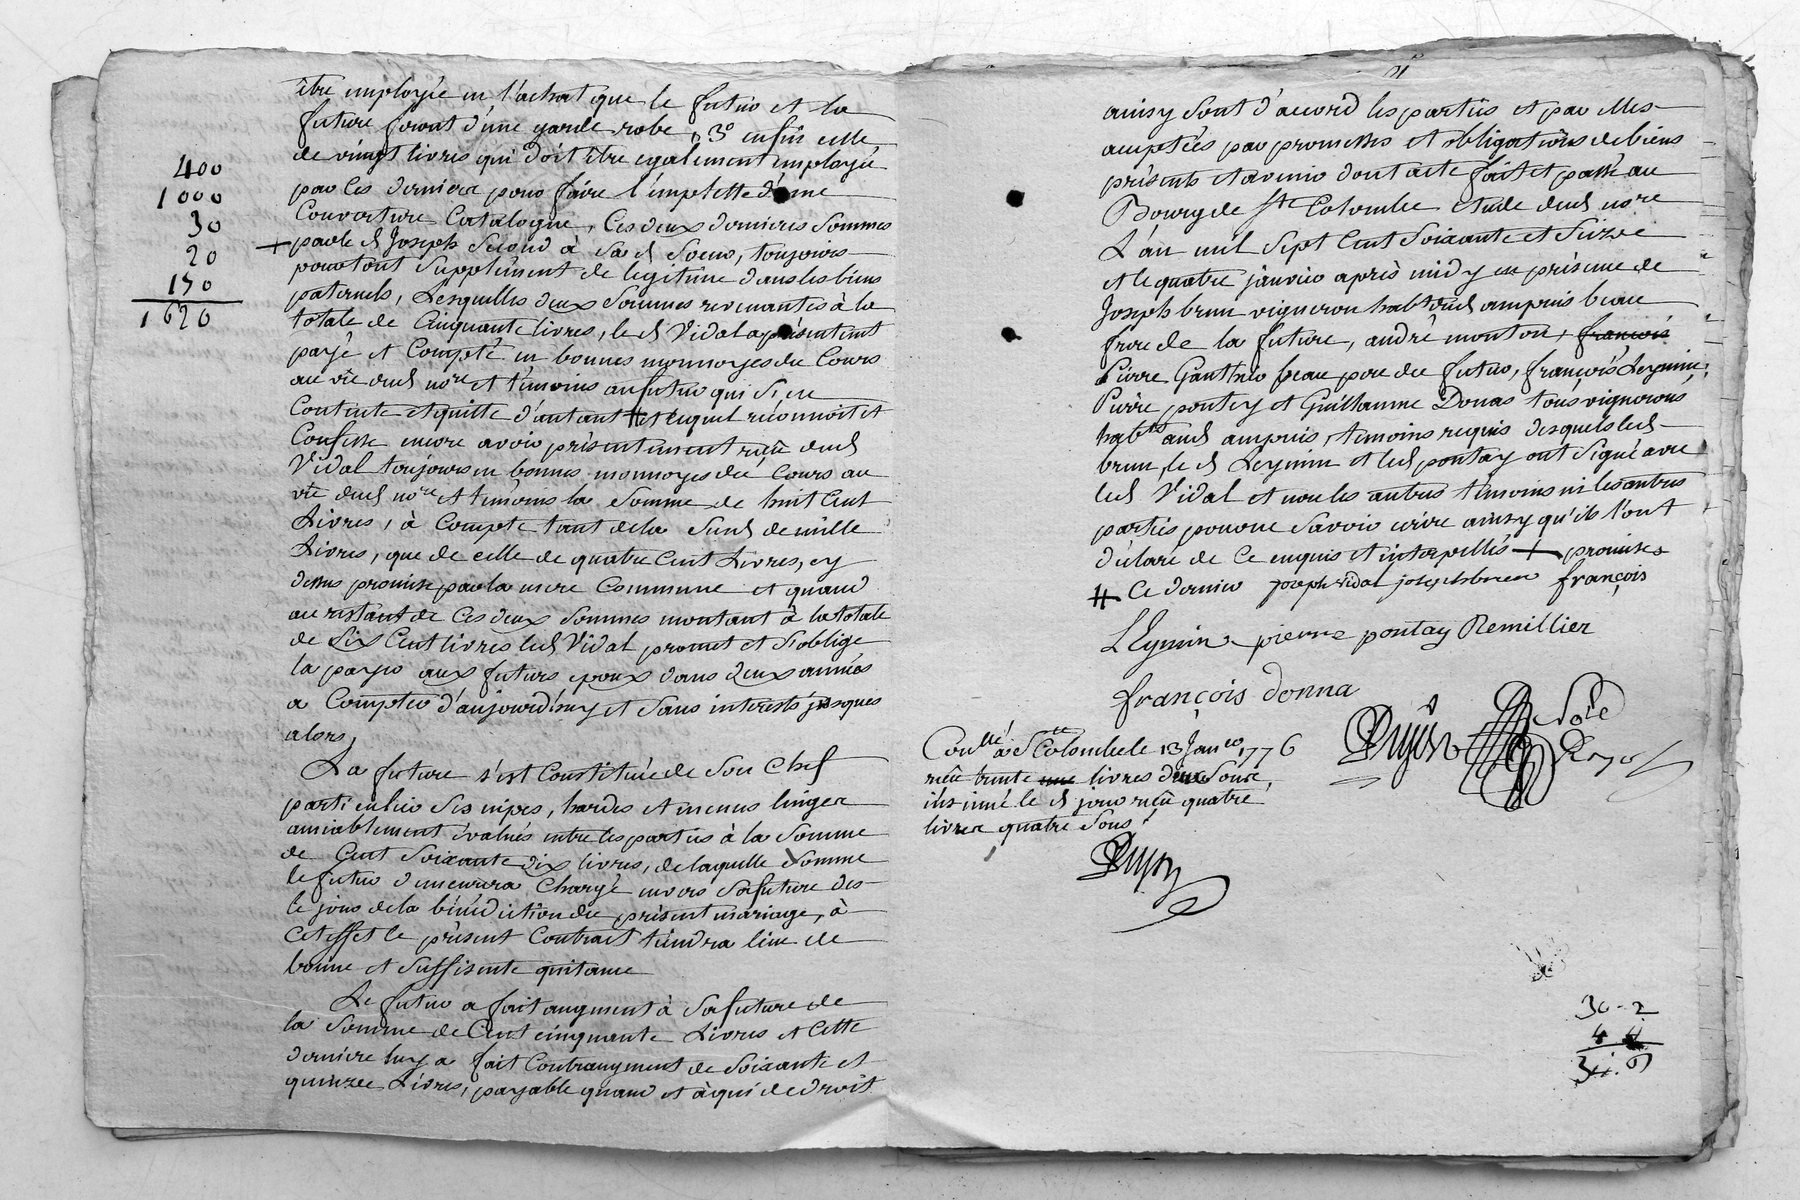 400
1000
30
20
170
1620
être employée en l'achat que le futur et la
future feront d'une garde robe, 3° enfin celle
de vingt livres qui doit être egalement employée
par ces derniers pour faire l'emplette d'une
Couverture Catalogne, Ces deux dernieres sommes
+ par le d Joseph Second à sa d soeur, toujours
pour tout supplement de legitime dans les biens
paternels, Lesquelles deux sommes revenantes à la
totale de Cinquante livres, le d Vidal a présentement
payé et Compté en bonnes monnoyes du Cours
au vû dud nore et témoins au futur qui s'en
Contente et quitte d'autant # et lequel reconnoit et
Confesse encore avoir présentement reçû dud
Vidal toujours en bonnes monnoyes du Cours au
vû dud nore et témoins la somme de huit Cent
Livres, à Compte tant de la susd de mille
Livres, que de celle de quatre Cent Livres, cy
dessus promise par la mere Commune et quand
au restant de Ces deux sommes montant à la totale
de Six Cent livres led Vidal promet et s'oblige
la payer aux futurs epoux dans deux années
a Compter d'aujourd'huy et sans interests jusques
alors,
La future s'est Constituée de son Chef
particulier ses nipes, hardes et menus linges
amiablement évalués entre les parties à la somme
de Cent soixante dix livres, de laquelle somme
le futur demeurera Chargé envers sa future dès
le jour de la bénédiction du présent mariage, à
Cet effet le présent Contrat tiendra lieu de
bonne et suffisente quitance
Le futur a fait augment à sa future de
la somme de Cent cinquante Livres et Cette
derniere luy a fait Contraugment de soixante et
quinze Livres, payable quand et à qui de droit
ainsy sont d'accord les parties et par elles
acceptées par promesses et obligations de biens
présents et avenir dont acte fait et passé au
Bourg de Ste Colombe etude dud nore
L'an mil sept Cent soixante et seize
et le quatre janvier après midy en présence de
Joseph brun vigneron habt aud ampuis beau
frere de la future, andré monton, françois
Pierre Gauthier beau pere du futur, françois Leymin,
Pierre pontey et Guillaume Donas tous vignerons
habts aud ampuis, temoins requis desquels led
brun, le d Leymin et led pontay ont signé avec
led Vidal et non les autres temoins ni les autres
parties pour ne savoir écrire ainsy qu'ils l'ont
déclaré de Ce enquis et interpellés + promises
# Ce dernier joseph vidal joseph brun françois
LEymin pierre pontay Remillier
françois donna
Dujon Nore Royal
Conllé à Ste Colombe le 13 Janer 1776
reçû trente une livres deux sous
insinué le d jour reçû quatre
livres quatre sous
Dujon
30-2
4 4
34.6